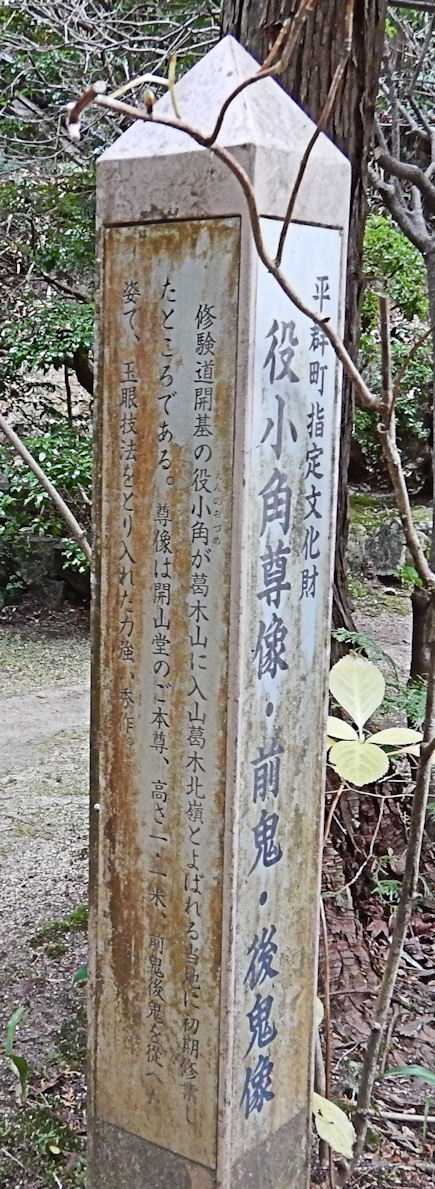 平群町指定文化財
役小角尊像・前鬼・後鬼像
修験道開基の役小角が葛木山に入山葛木北嶺とよばれる当地に初期修業し
えんのおづぬ
たところである。尊像は開山堂のご本尊、高さ一・一米、前鬼後鬼を従へた
姿で、玉眼技法をとり入れた力強い秀作。